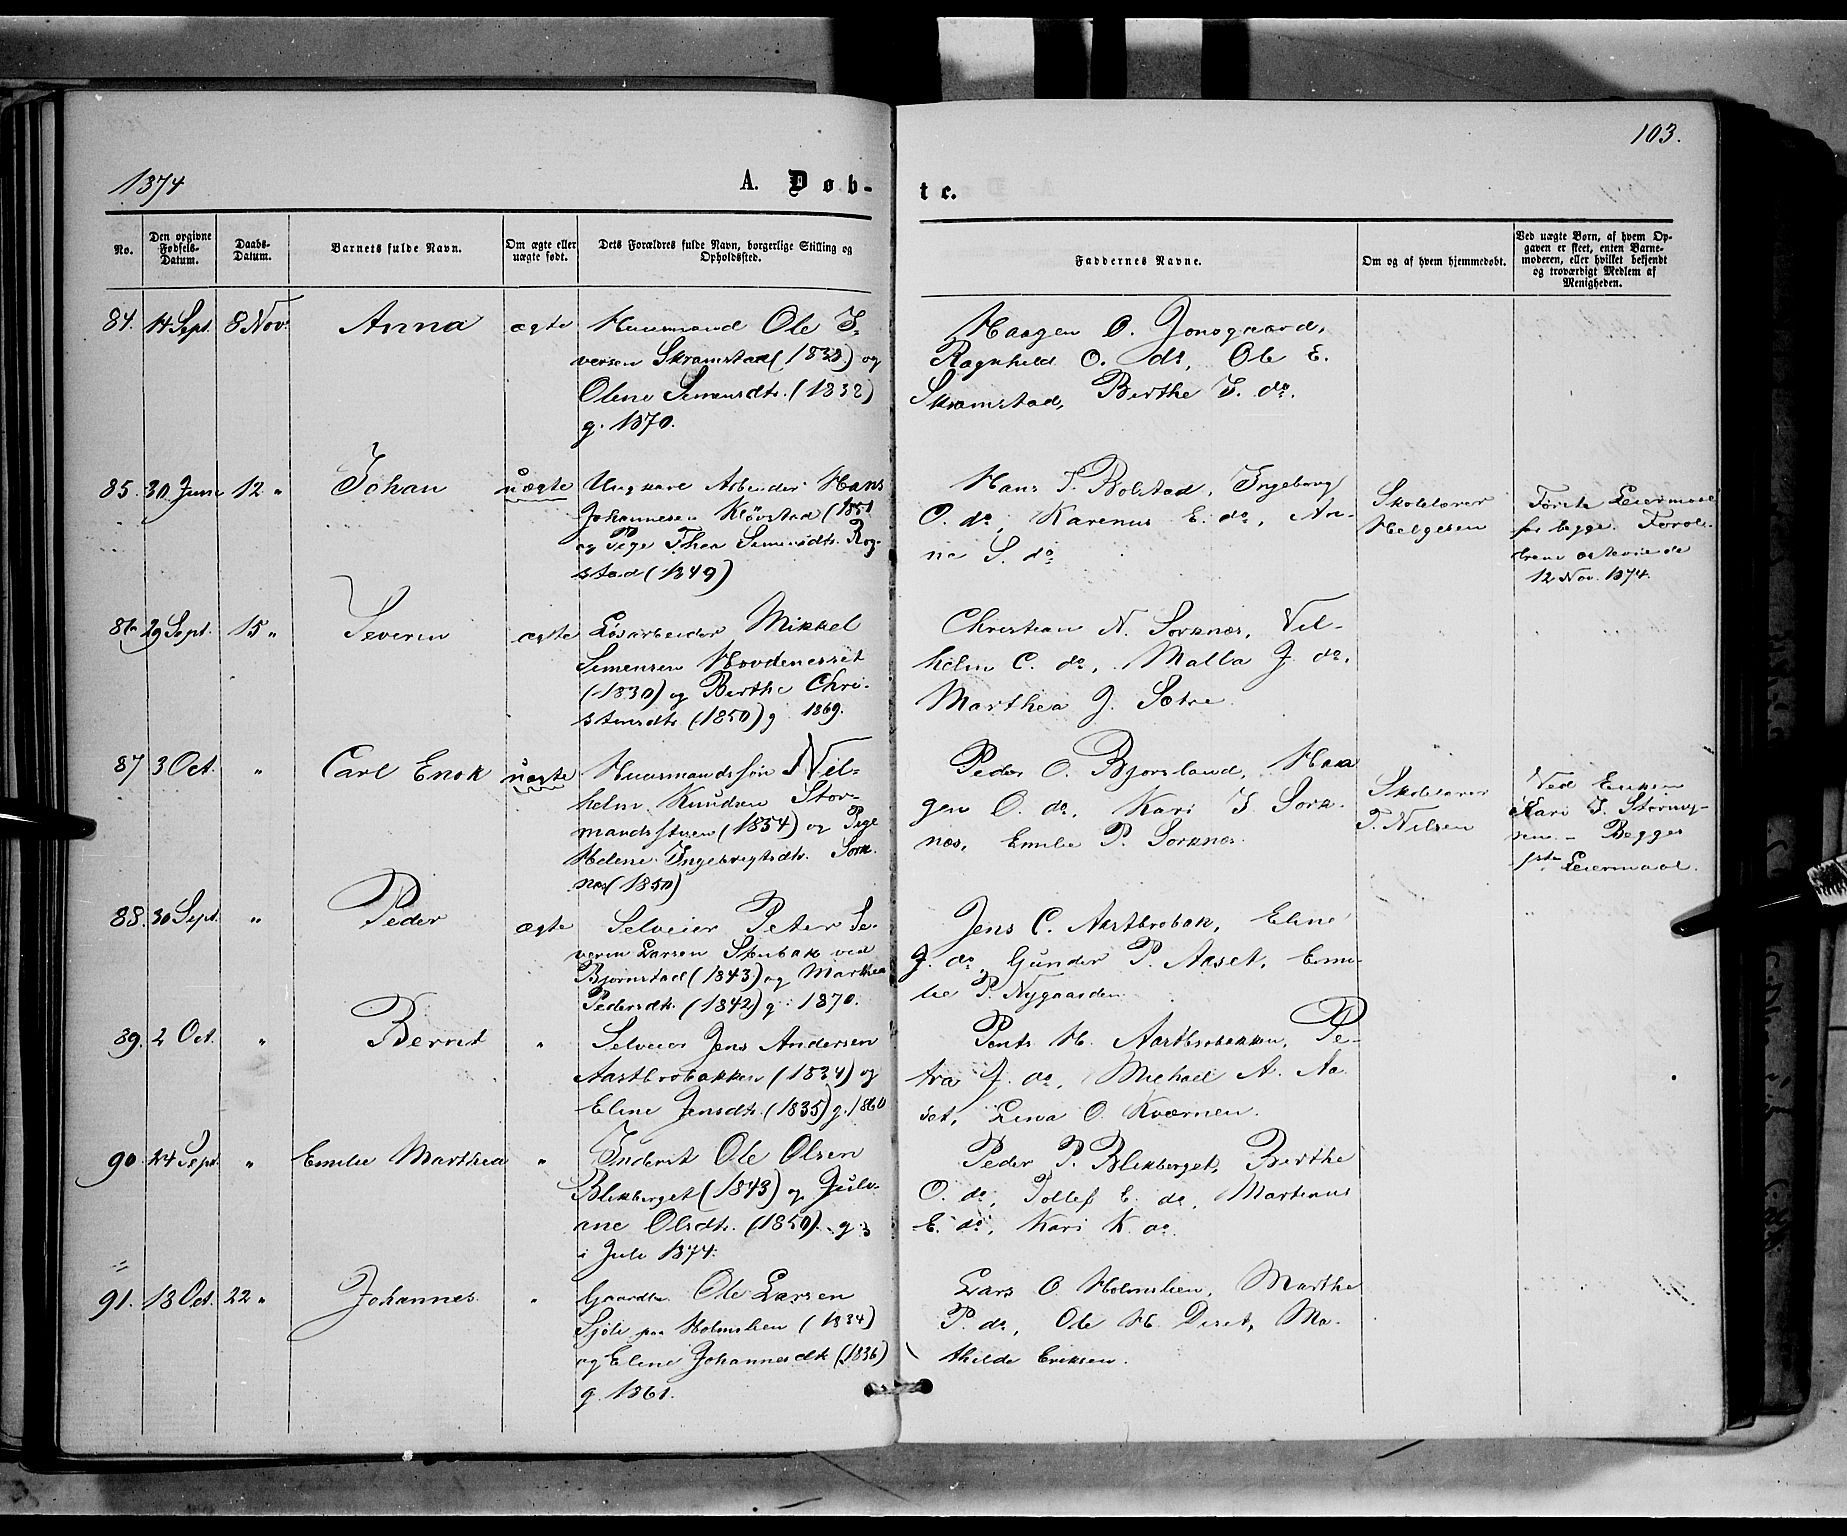 103.
1874
A. Døb-
te.
No.
Den opgivne Fødsels-Datum.
Daabs-Datum.
Barnets fulde Navn.
Om ægte eller uægte født.
Dets Forældres fulde Navn, borgerlige Stilling og Opholdssted.
Faddernes Navne.
Om og af hvem hjemmedøbt.
Ved uægte Børn, af hvem Opgaven er skeet, enten Barnemoderen, eller hvilket bekjendt og troværdigt Medlem af Menigheden.
84. 14 Sept. 8 Nov. Anna ægte Huusmand Ole I-
versen Skramstad (1838) og
Oline Simensdtr. (1832)
g. 1870.
Haagen O. Jonsgaard,
Ragnhild O. do, Ole E.
Skramstad, Berthe I. do.
85. 30 Juni 12 " Johan uægte Ungkarl Arbeider Hans
Johannesen Kløvstad (1851
og Pige Thea Simensdtr. Rog-
stad (1849)
Hans T. Bolstad, Ingeborg
O. do, Karenus E. do, An-
ne S. do
Skolelærer
Helgesen
Første Leiermaal
for begge.
12 Nov. 1874.
86 29 Sept. 15 " Severin ægte Løsarbeider Mikkel
Simensen Hovdeneset
(1830) og Berthe Chri-
stensdtr (1850) g. 1869.
Christian N. Sorknæs, Vil-
helm C. do, Malla J. do,
Marthea J. Sætre.
87 3 Oct. " Carl Enok uægte Huusmandssøn Vil-
helm Knudsen Stor-
mandsstuen (1854) og Pige
Helene Ingebrigtsdtr. Sork-
næs (1850)
Peder O. Bjørsland, Haa
gen O. do, Kari I. Sork-
næs, Emilie P. Sorknæs.
Skolelærer
P. Nilsen
Ved Enken
Kari I.
Begges
1ste Leiermaal.
88. 30 Sept. " Peder ægte Selveier Peter Se-
verin Larsen Sterbak ved
Bjørnstad (1843) og Marthea
Pedersdtr. (1842) g. 1870.
Jens C. Aastbrobak, Eline
J. do, Gunder P. Aaset, Emi-
lie P. Nygaarden
89. 2 Oct. " Bernt " Selveier Jens Andersen
Aastbrobakken (1834) og
Eline Jensdtr. (1835) g. 1860
Pents H. Aastbrobakken, Pe-
tra J. do, Michael A. Aa
set, Lina O. Kværnen.
90. 24 Sept. " Emilie Marthea " Inderst Ole Olsen
Blikberget (1843) og Julia-
ne Olsdtr. (1850) g.
i Juli 1874.
Peder P. Blikberget, Berthe
O. do, Tollef E. do, Martinus
E. do, Kari K. do.
91. 18 Oct. 22 " Johannes " Gaardbr. Ole Larsen
Sjøli paa Holmslien (1834)
og Eline Johannesdtr (1836)
g. 1861.
Lars O. Holmslien, Marthe
P. do, Ole H. Deset, Ma-
thilde Eriksen.